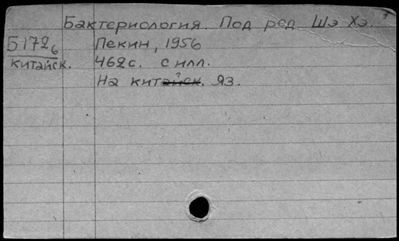 Бактериология. Под ред Шэ Хэ.
Б172б Пекин, 1956
китайск. 462с. с илл.
На китайск. яз.